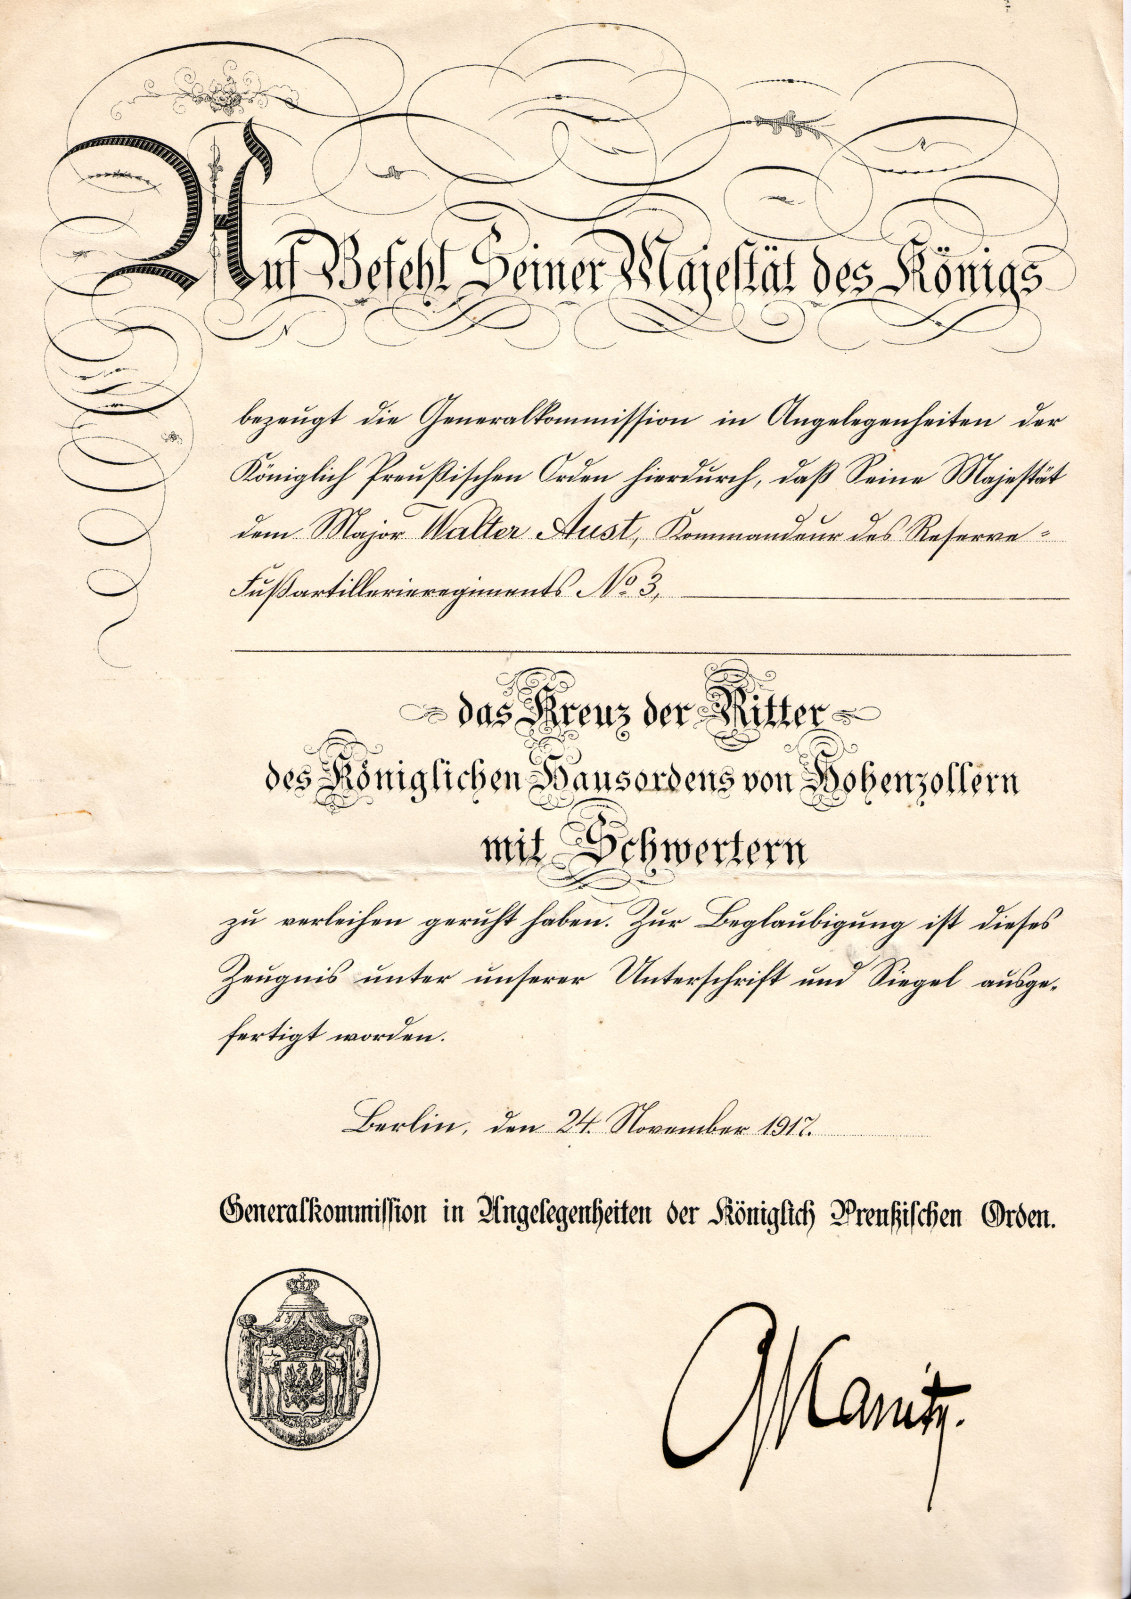 Auf Befehl Seiner Majestät des Königs
bezeugt die Generalkommission in Angelegenheiten der
Königlich Preußischen Orden hierdurch, daß Seine Majestät
dem Major Walter Aust, Kommandeur des Reserve-
Fußartillerieregiments No 3,
das Kreuz der Ritter
des Königlichen Hausordens von Hohenzollern
mit Schwertern
zu verleihen geruht haben. Zur Beglaubigung ist dieses
Zeugnis unter unserer Unterschrift und Siegel ausge-
fertigt worden.
Berlin, den 24. November 1917.
Generalkommission in Angelegenheiten der Königlich Preußischen Orden.
Kanitz.